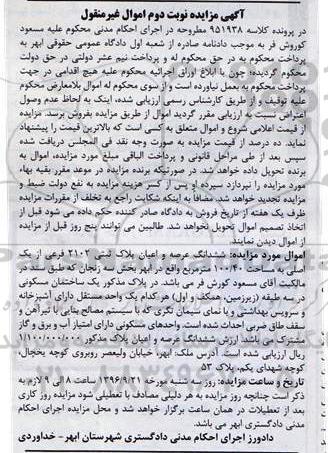 آگهی مزایده نوبت دوم اموال غیرمنقول
در پرونده کلاسه ۹۵۱۹۳۸ مطروحه در اجرای احکام مدنی محکوم علیه مسعود
کوروش فر به موجب دادنامه صادره از شعبه اول دادگاه عمومی حقوقی ابهر به
پرداخت محکوم به در حق محکوم له و پرداخت نیم عشر دولتی در حق دولت
محکوم گردیده؛ چون با ابلاغ اوراق اجرائیه محکوم علیه هیچ اقدامی در جهت
پرداخت محکوم به بعمل نیاورده است و از سوی محکوم له اموال بلامعارض محکوم
علیه توقیف و از طریق کارشناس رسمی ارزیابی شده، اینک به لحاظ عدم وصول
اعتراض نسبت به ارزیابی مقرر گردید اموال از طریق مزایده بفروش برسد. مزایده
از قیمت اعلامی شروع و اموال متعلق به کسی است که بالاترین قیمت را پیشنهاد
نماید. ده درصد از قیمت مزایده به صورت وجه نقد فی المجلس دریافت شده
سپس بعد از طی مراحل قانونی و پرداخت الباقی مبلغ مورد مزایده، اموال به
برنده تحویل داده خواهد شد. در صورتیکه برنده مزایده در موعد مقرر بقیه بهاء
مورد مزایده را نپردازد سپرده او پس از کسر هزینه مزایده به نفع دولت ضبط و
مزایده تجدید خواهد شد. مضافا به اینکه شکایت راجع به تخلف از مقررات مزایده
ظرف یک هفته از تاریخ فروش به دادگاه صادر کننده حکم داده می شود قبل از
اتخاذ تصمیم اموال تحویل نخواهد شد. طالبین می توانند پنج روز قبل از مزایده
از اموال دیدن نمایند.
اموال مورد مزایده: ششدانگ عرصه و اعیان پلاک ثبتی ۲۱۰۲ فرعی از یک
اصلی به مساحت ۱۰۰/۴۰ مترمربع واقع در ابهر بخش سه زنجان که طبق سند در
مالکیت آقای مسعود کورش فر می باشد. در پلاک مذکور یک ساختمان مسکونی
در سه طبقه (زیرزمین، همکف و اول) هر کدام یک واحد مستقل دارای آشپزخانه
و سرویس بهداشتی و با نمای سیمان نگری که با سیستم مصالح بنایی با تیرآهن و
سقف طاق ضربی احداث شده است. واحدهای مسکونی دارای امتیاز آب و برق و گاز
مشترک می باشد ارزش ششدانگ عرصه و اعیان پلاک مذکور ۱/۱۰۰/۰۰۰/۰۰۰
ریال ارزیابی شده است. آدرس ملک: ابهر، خیابان ولیعصر روبروی کوچه یخچال،
کوچه شهدای یکم، پلاک ۵۳
تاریخ و ساعت مزایده: روز سه شنبه مورخه ۱۳۹۶/۹/۲۱ ساعت ۸ الی ۹ لازم به
ذکر است چنانچه روز مزایده به هر دلیلی مصادف با تعطیلی شود مزایده روز کاری
بعد از تعطیلات در همان ساعت برگزار خواهد شد و محل مزایده اجرای احکام
مدنی دادگستری ابهر می باشد.
دادورز اجرای احکام مدنی دادگستری شهرستان ابهر - خداوردی